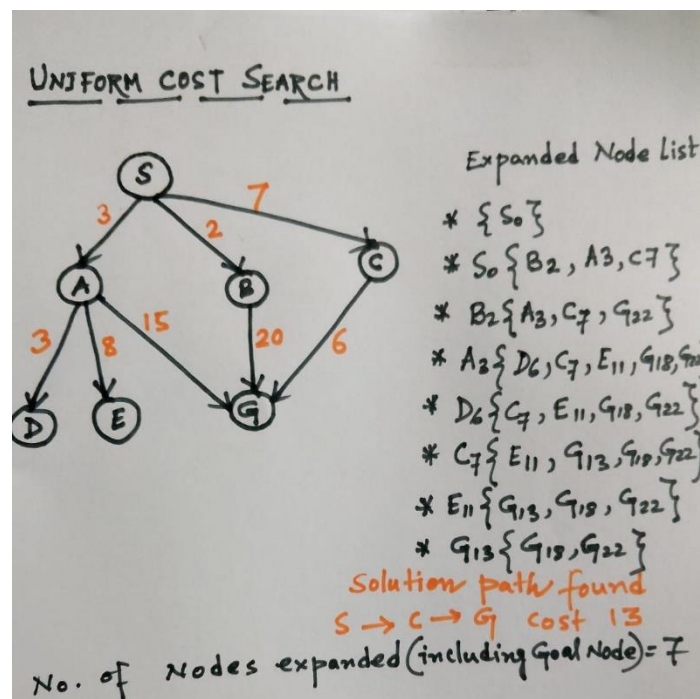 UNIFORM COST SEARCH
Expanded Node List
S
7
3
2
* {S0}
C
* S0{B2, A3, C7}
A
B
* B2{A3, C7, G22}
15
3
8
20
6
* A3{D6, C7, E11, G18, G22
D
E
G
* D6{C7, E11, G18, G22}
* C7{E11, G13, G18, G22}
* E11{G13, G18, G22}
* G13{G18, G22}
Solution path found
S → C → G cost 13
No. of Nodes expanded (including Goal Node) = 7